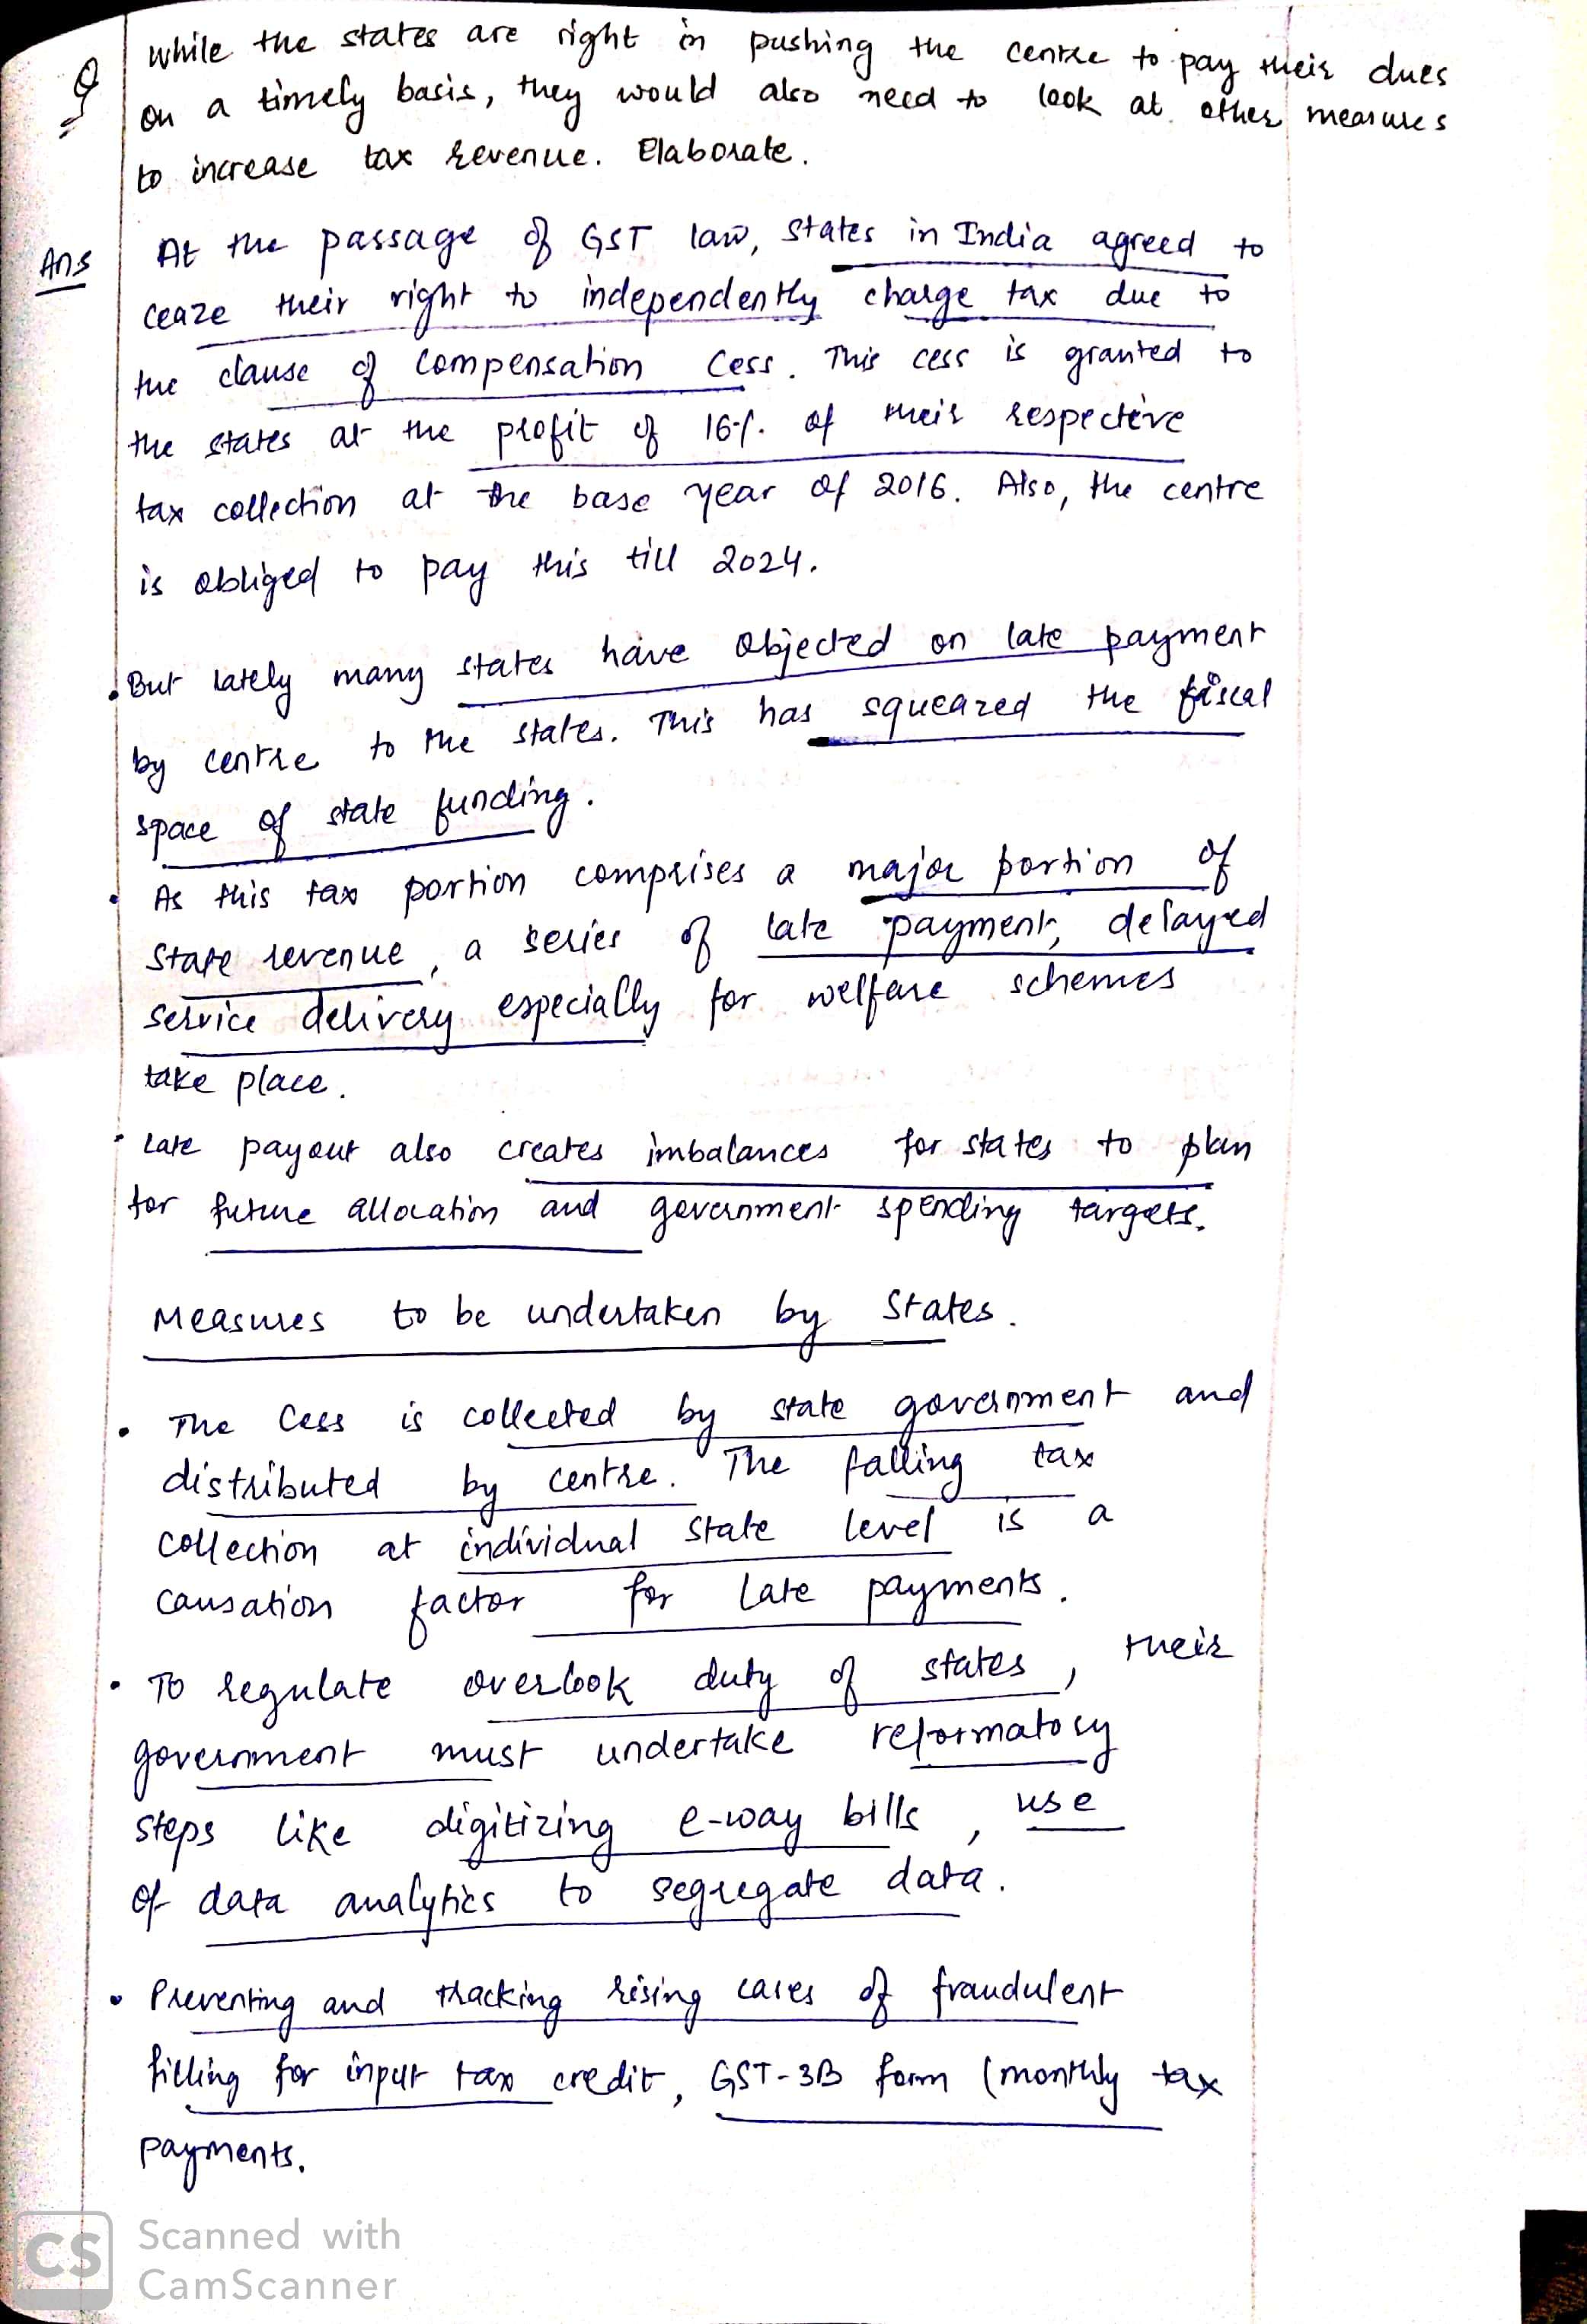 Q while the states are right in pushing the centre to pay their dues
on a timely basis, they would also need to look at other measures
to increase tax revenue. Elaborate.
Ans At the passage of GST law, states in India agreed to
ceaze their right to independently charge tax due to
the clause of compensation cess. This cess is granted to
the states at the profit of 16%. of their respective
tax collection at the base year of 2016. Also, the centre
is obliged to pay this till 2024.
• But lately many states have objected on late payment
by centre to the states. This has squeazed the fiscal
space of state funding.
• As this tax portion comprises a major portion of
State revenue, a series of late payment, delayed
service delivery especially for welfare schemes
take place.
• Late payout also creates imbalances for states to plan
for future allocation and government spending targets.
Measures to be undertaken by States.
• The Cess is collected by state government and
distributed by centre. The falling tax
collection at individual state level is a
causation factor for late payments.
• To regulate overlook duty of states, their
government must undertake reformatory
steps like digitizing e-way bills, use
of data analytics to segregate data.
• Preventing and tracking rising cases of fraudulent
filling for input tax credit, GST-3B form (monthly tax
payments.
CS Scanned with
CamScanner